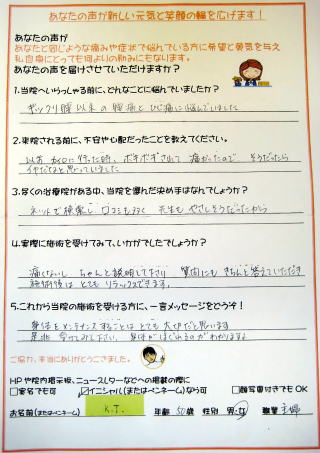 あなたの声が新しい元気と笑顔の輪を広げます！
あなたの声が
あなたと同じような痛みや症状で悩んでいる方に希望と勇気を与え
私自身にとっても何よりの励みにもなります。
あなたの声を届けさせていただけますか？
1.当院へいらっしゃる前に、どんなことに悩んでいましたか？
ギックリ腰以来の腰痛とひざ痛に悩んでいました
2.来院される前に、不安や心配だったことを教えてください。
以前 他に行った時、ボキボキされて 痛かったので そうだったら
イヤだなと思っていました
3.尽くの治療院がある中、当院を選んだ決め手はなんでしょうか？
ネットで検索し 口コミもよく 先生も やさしそうだったから
4.実際に施術を受けてみて、いかがでしたでしょうか？
痛くないし ちゃんと説明して下さり 質問にも きちんと答えていただき
施術後は とても リラックスできます。
5.これから当院の施術を受ける方に、一言メッセージをどうぞ！
身体をメンテナンスすることは とても 大切だと思います
是非 受けてみて下さい。 身体がほぐれるのがわかりますよ
ご協力、本当にありがとうございました。
HPや院内掲示板、ニュースレターなどへの掲載の際に
□実名でも可 ☑イニシャル(またはペンネーム)なら可 □顔写真付きでもOK
お名前(またはペンネーム) K.T. 年齢 50歳 性別 男・女 職業 主婦